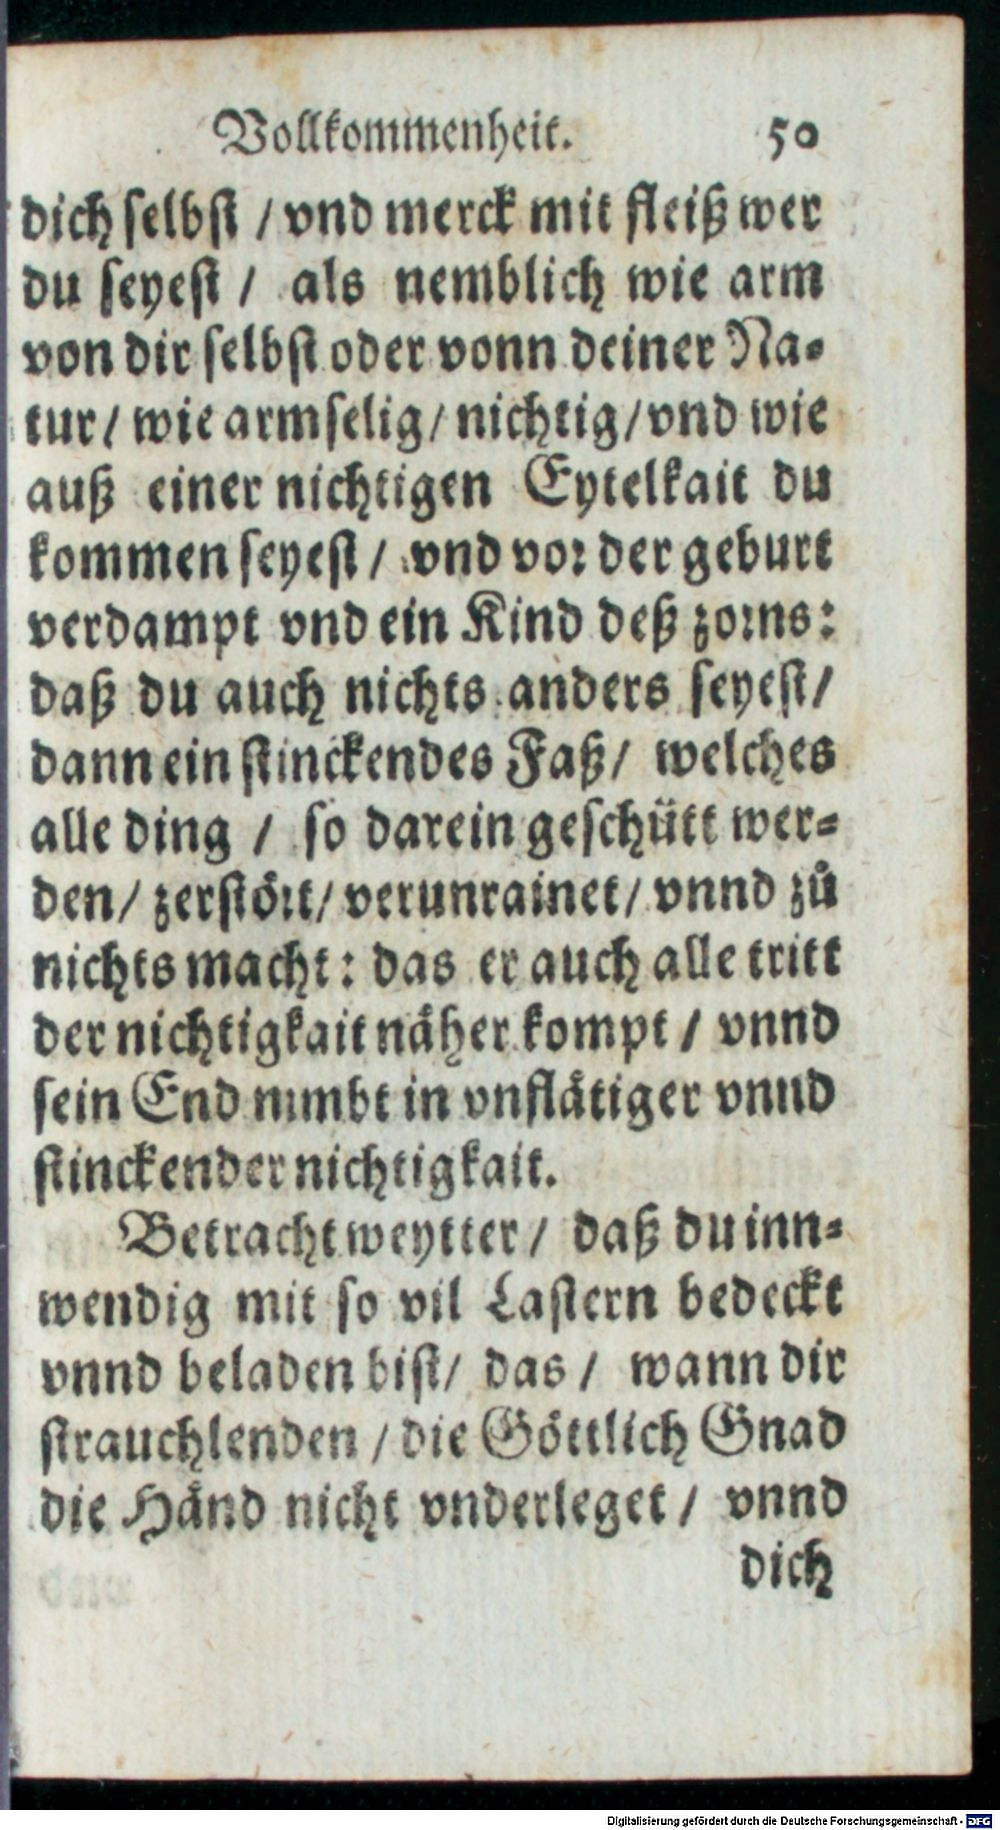 Vollkommenheit. 50
dich selbst / vnd merck mit fleiß wer
du seyest / als nemblich wie arm
von dir selbst oder vonn deiner Na-
tur / wie armselig / nichtig / vnd wie
auß einer nichtigen Eytelkait du
kommen seyest / vnd vor der geburt
verdampt vnd ein Kind deß zorns:
daß du auch nichts anders seyest /
dann ein stinckendes Faß / welches
alle ding / so darein geschütt wer-
den / zerstört / verunrainet / vnnd zů
nichts macht: das er auch alle tritt
der nichtigkait näher kompt / vnnd
sein End nimbt in vnflätiger vnnd
stinckender nichtigkait.
Betracht weytter / daß du inn-
wendig mit so vil Lastern bedeckt
vnnd beladen bist / das / wann dir
strauchlenden / die Göttlich Gnad
die Händ nicht vnderleget / vnnd
dich
Digitalisierung gefördert durch die Deutsche Forschungsgemeinschaft - DFG